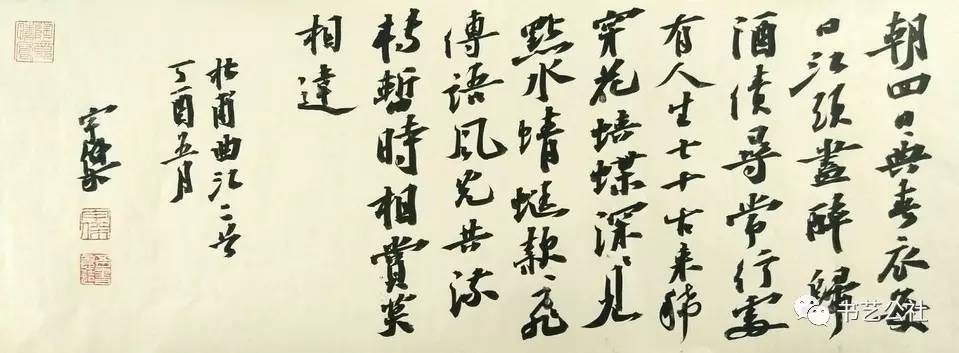 朝回日〻典春衣每
日江頭盡醉歸
酒債尋常行處
有人生七十古来稀
穿花蛺蝶深〻見
點水蜻蜓款〻飛
傳語風光共流
轉暫時相賞莫
相違
杜甫曲江二首
丁酉五月
书艺公社